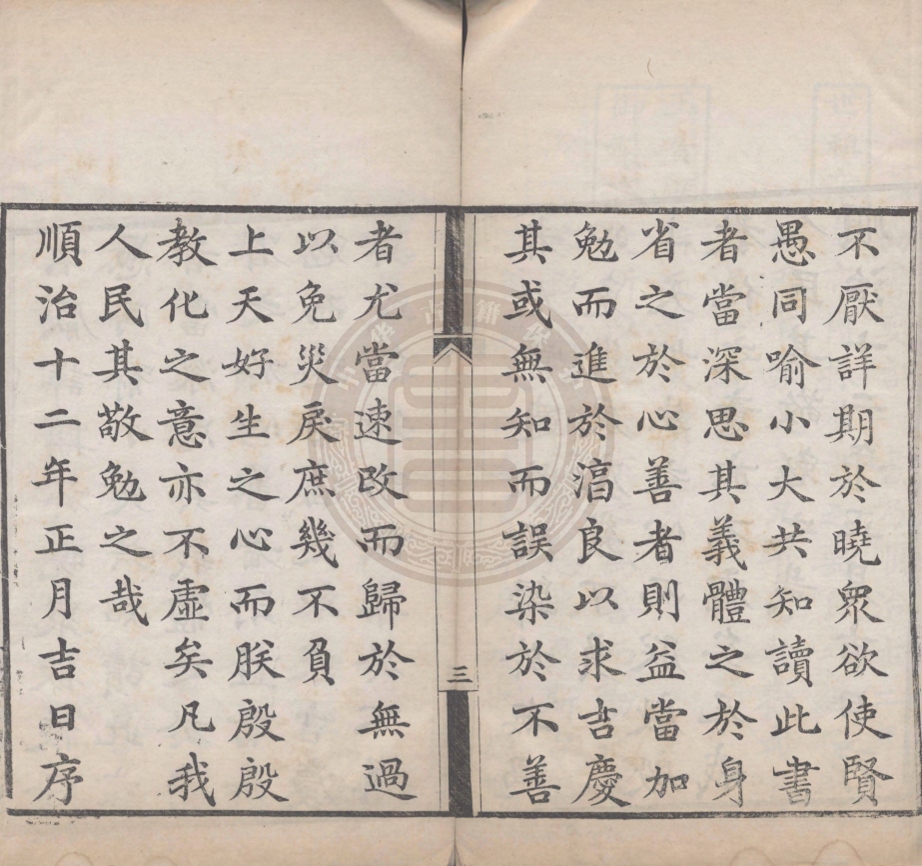 不厭詳期於曉衆欲使賢
愚同喻小大共知讀此書
者當深思其義體之於身
省之於心善者則益當加
勉而進於滛良以求吉慶
其或無知而誤染於不善
三
者尤當速改而歸於無過
以免災戾庶幾不負
上天好生之心而朕殷殷
教化之意亦不虛矣凡我
人民其敬勉之哉
順治十二年正月吉日序